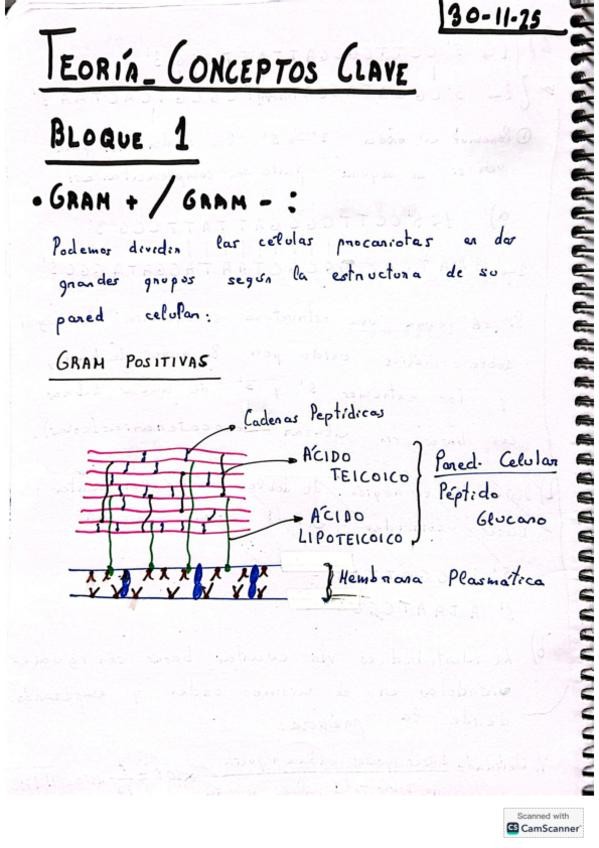 30-11-25
TEORÍA_ CONCEPTOS CLAVE
BLOQUE 1
• GRAM + / GRAM - :
Podemos dividir las células procariotas en dos
grandes grupos según la estructura de su
pared celular:
GRAM POSITIVAS
Cadenas Peptídicas
ÁCIDO
TEICOICO
ÁCIDO
LIPOTEICOICO
Pared. Celular
Péptido
Glucano
Membrana Plasmática
Scanned with
CS CamScanner